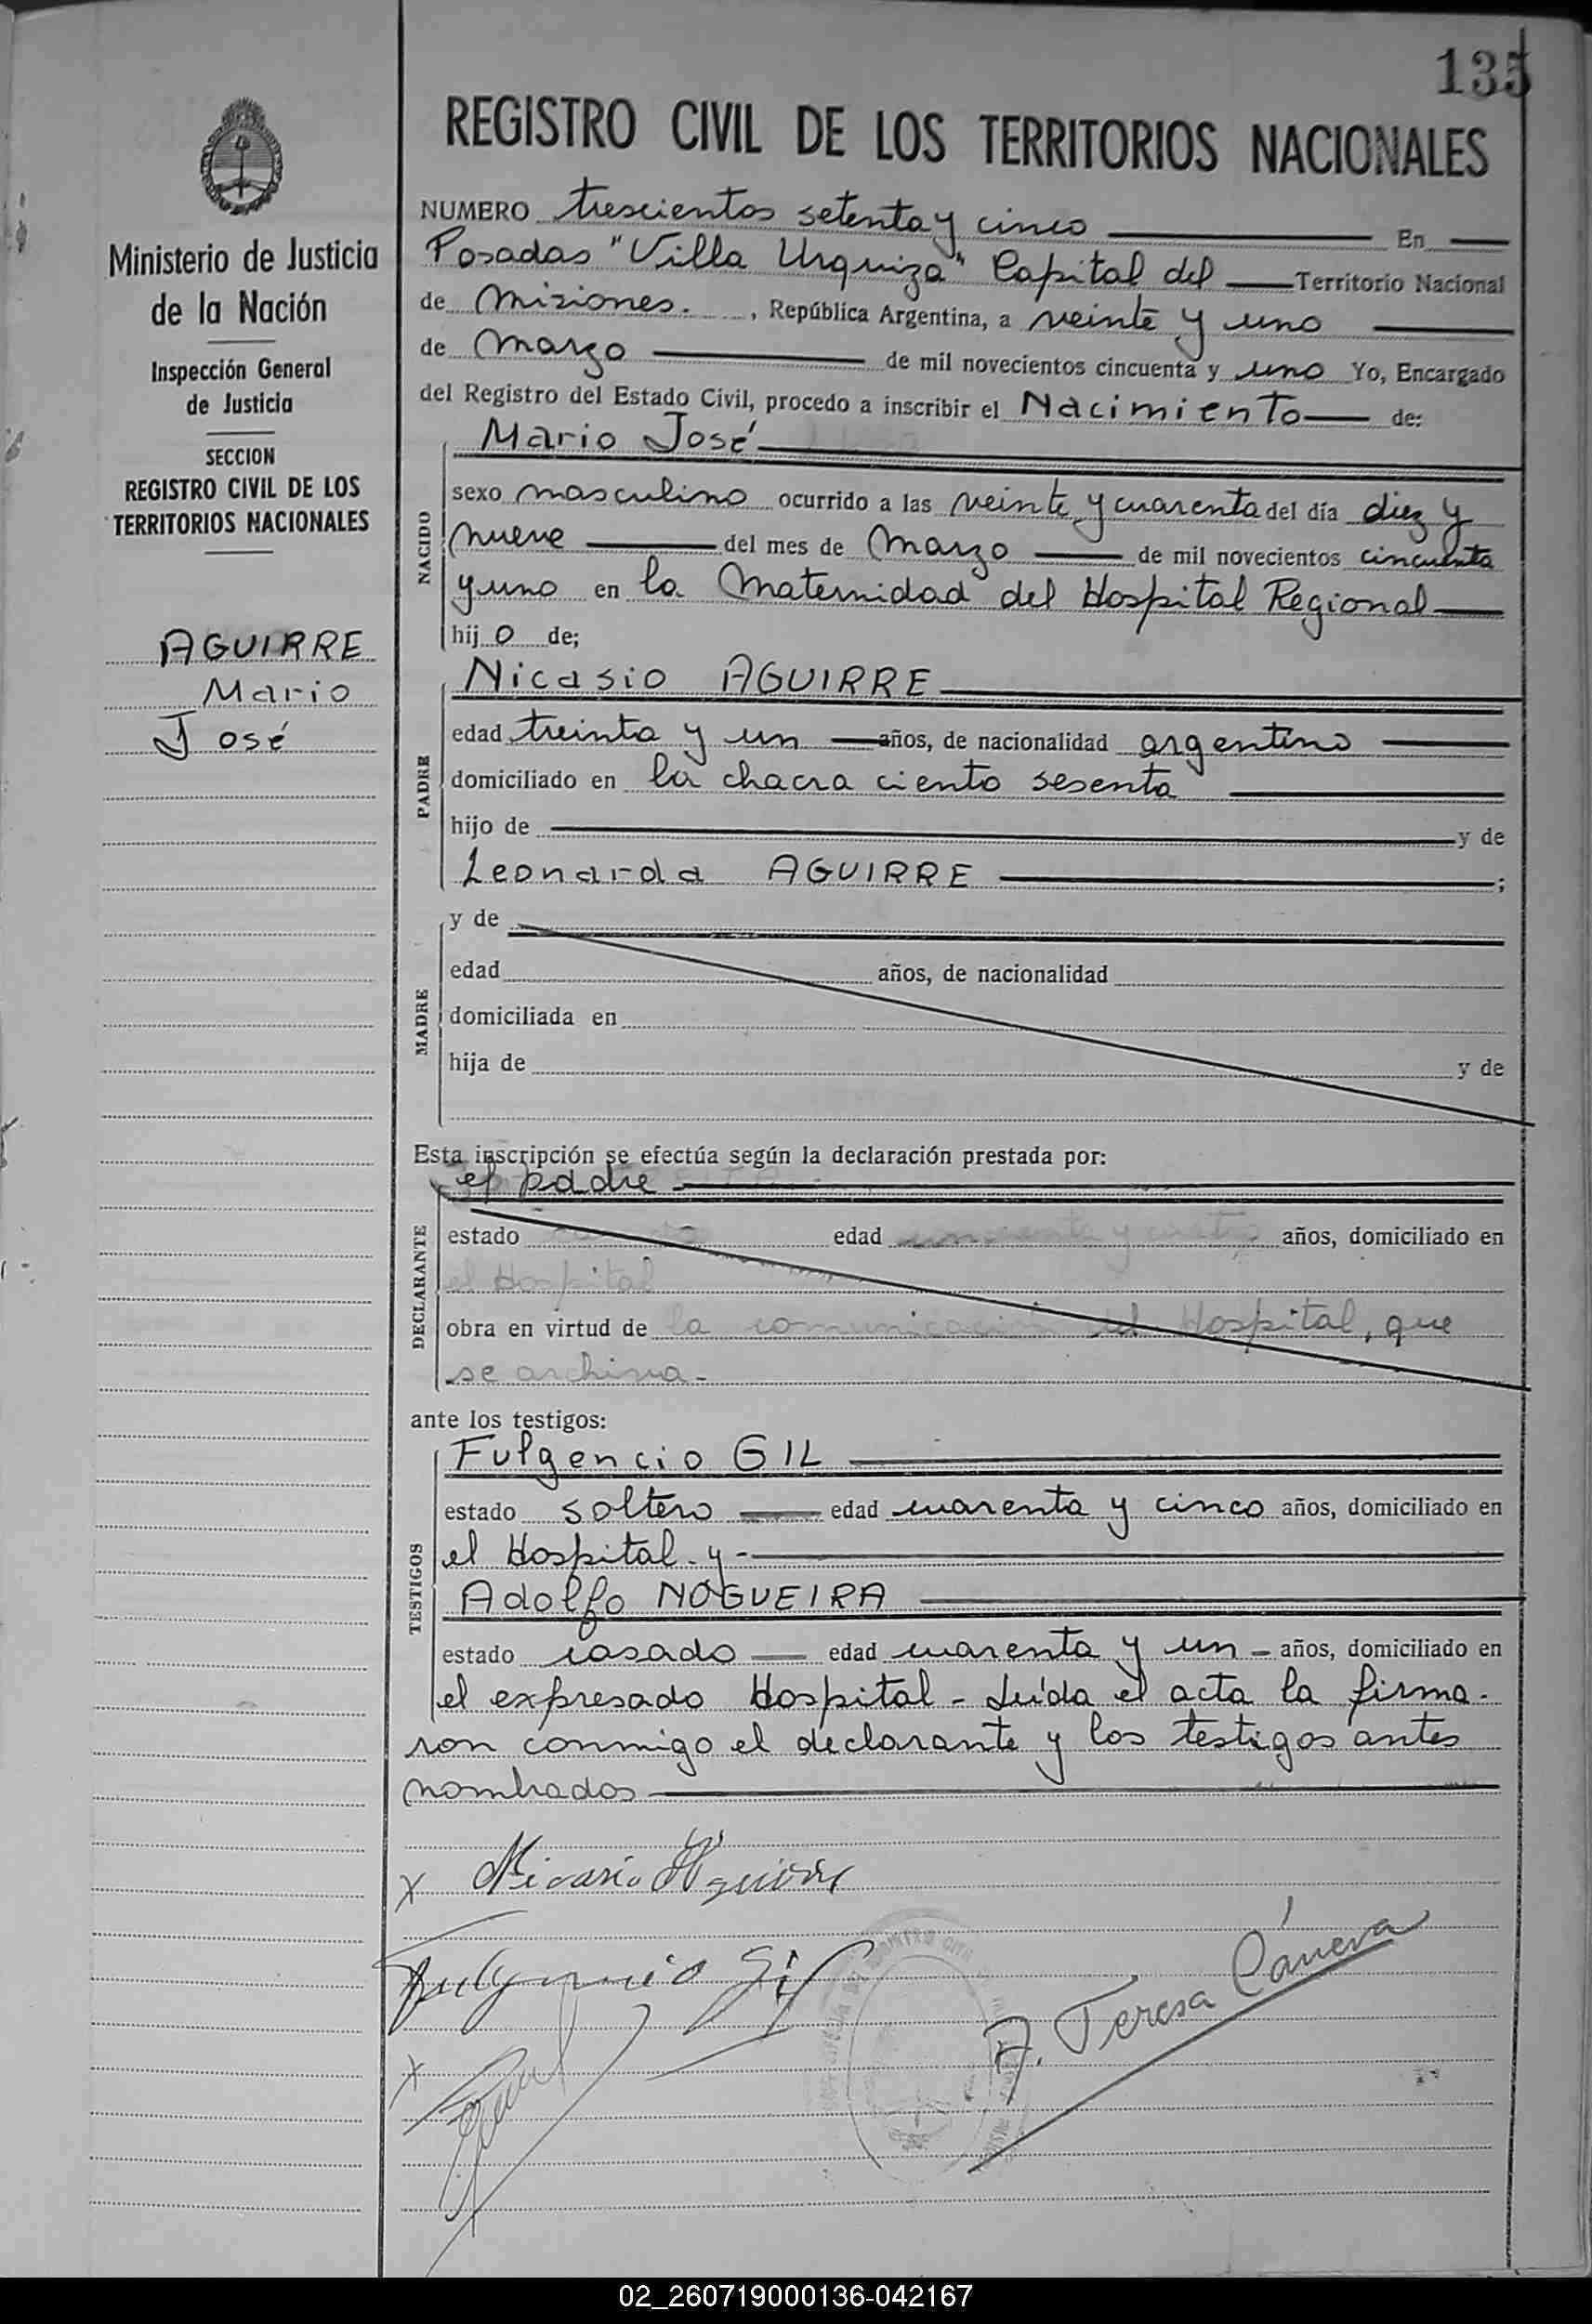 135
REGISTRO CIVIL DE LOS TERRITORIOS NACIONALES
Ministerio de Justicia
de la Nación
Inspección General
de Justicia
SECCION
REGISTRO CIVIL DE LOS
TERRITORIOS NACIONALES
AGUIRRE
Mario
José
NUMERO trescientos setenta y cinco En
Posadas "Villa Urquiza" Capital del Territorio Nacional
de Misiones. , República Argentina, a veinte y uno
de Marzo de mil novecientos cincuenta y uno Yo, Encargado
del Registro del Estado Civil, procedo a inscribir el Nacimiento de:
Mario José
NACIDO
sexo masculino ocurrido a las veinte y cuarenta del día diez y
nueve del mes de Marzo de mil novecientos cincuenta
y uno en la Maternidad del Hospital Regional
hij o de;
Nicasio AGUIRRE
PADRE
edad treinta y un años, de nacionalidad argentino
domiciliado en la chacra ciento sesenta
hijo de y de
Leonarda AGUIRRE ;
MADRE
y de
edad años, de nacionalidad
domiciliada en
hija de y de
Esta inscripción se efectúa según la declaración prestada por:
el padre
DECLARANTE
estado edad cincuenta y cuatro años, domiciliado en
el Hospital
obra en virtud de la comunicación del Hospital, que
se archiva-
ante los testigos:
TESTIGOS
Fulgencio GIL
estado soltero edad cuarenta y cinco años, domiciliado en
el Hospital - y -
Adolfo NOGUEIRA
estado casado edad cuarenta y un - años, domiciliado en
el expresado Hospital - Leída el acta la firma-
ron conmigo el declarante y los testigos antes
nombrados
x Nicasio Aguirre
Fulgencio Gil
A. Teresa Cáneva
x
02_260719000136-042167